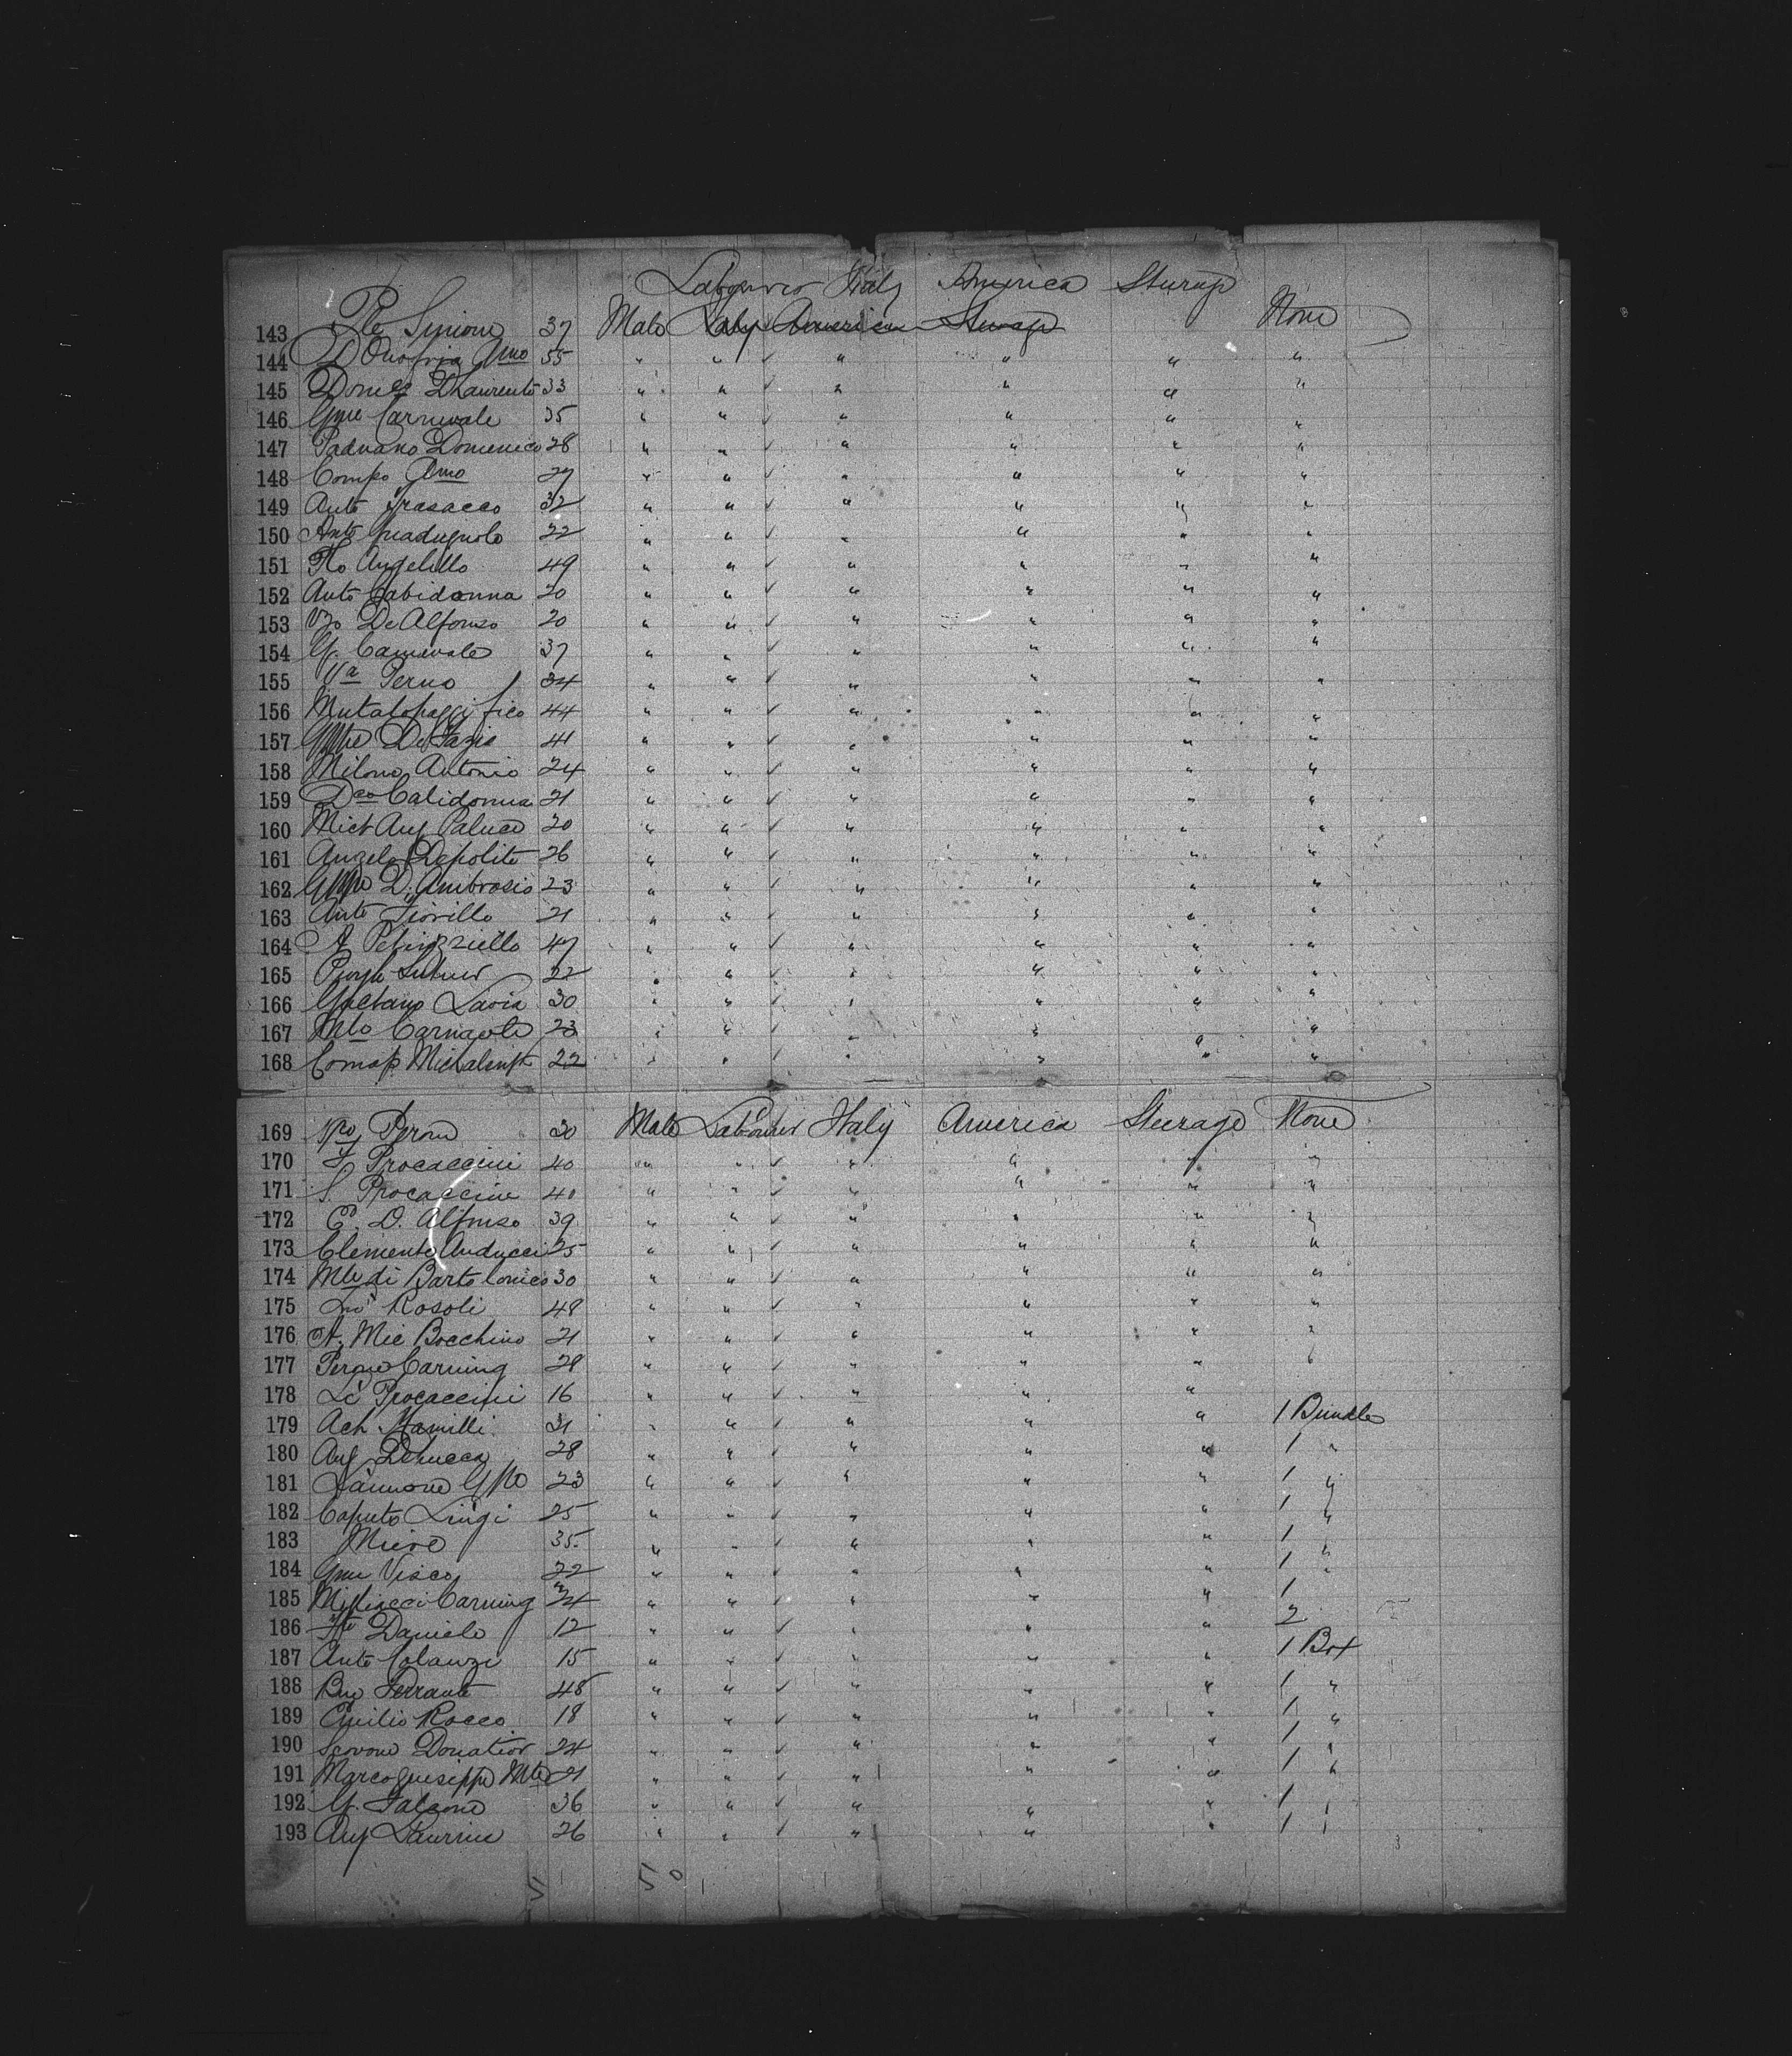 Labourer Italy America Sturap
143 Ple Simione 37 Male Italy America Sturap None
144 D Onofria Gmo 55 " " " " " "
145 Dome DLaurento 33 " " " " " "
146 Gme Carnevale 35 " " " " " "
147 Paduano Domenico 28 " " " " " "
148 Compo Gmo 27 " " " " " "
149 Anto Frasacco 32 " " " " " "
150 Anto Guadugnolo 22 " " " " " "
151 Flo Angelillo 49 " " " " " "
152 Anto Cabidonna 20 " " " " " "
153 Vzo De Alfonso 20 " " " " " "
154 G. Carnevale 37 " " " " " "
155 Va Perno 34 " " " " " "
156 Mutalopaggi fico 44 " " " " " "
157 Gppe De Fazia 41 " " " " " "
158 Milono Antonio 24 " " " " " "
159 Dco Calidonna 21 " " " " " "
160 Mich Ang Paluco 20 " " " " " "
161 Angelo Depolito 26 " " " " " "
162 Gppe D. Ambrosio 23 " " " " " "
163 Anto Fiorillo 21 " " " " " "
164 A Petrizziello 47 " " " " " "
165 22 " " " " " "
166 Gaetano Lavia 30 " " " " " "
167 Mlo Carnavale 23 " " " " " "
168 22 " " " " " "
169 Npo Perone 30 Male Labourer Italy America Steerage None
170 F Procaccini 40 " " " " " "
171 S. Procaccine 40 " " " " " "
172 Eo. D. Alfonso 39 " " " " " "
173 Clemento Anducci 25 " " " " " "
174 Mle di Bartolomeo 30 " " " " " "
175 Lui Rosoli 48 " " " " " "
176 A. Mic Bocchino 21 " " " " " "
177 Perone Carming 28 " " " " " "
178 Li Procaccini 16 " " " " "
179 Ach. Mamilli 31 " " " " " 1 Bundle
180 Ang Delucca 28 " " " " " 1 "
181 Iannone Gpe 23 " " " " " 1 "
182 Caputo Luigi 25 " " " " " 1 "
183 Miero 35 " " " " " 1 "
184 Gme Visco 22 " " " " " 1 "
185 Carming 24 " " " " " 1
186 Fte Daniele 12 " " " " " 2
187 Anto Colanzi 15 " " " " " 1 Box
188 Bno Ferrante 48 " " " " " 1 "
189 Emilio Rocco 18 " " " " " 1 "
190 Scovone Donatior 24 " " " " " 1 "
191 Marco Guiseppe Mle 21 " " " " " 1 "
192 G. Falcone 36 " " " " " 1 "
193 Ang Laurino 26 " " " " " 1 "
50